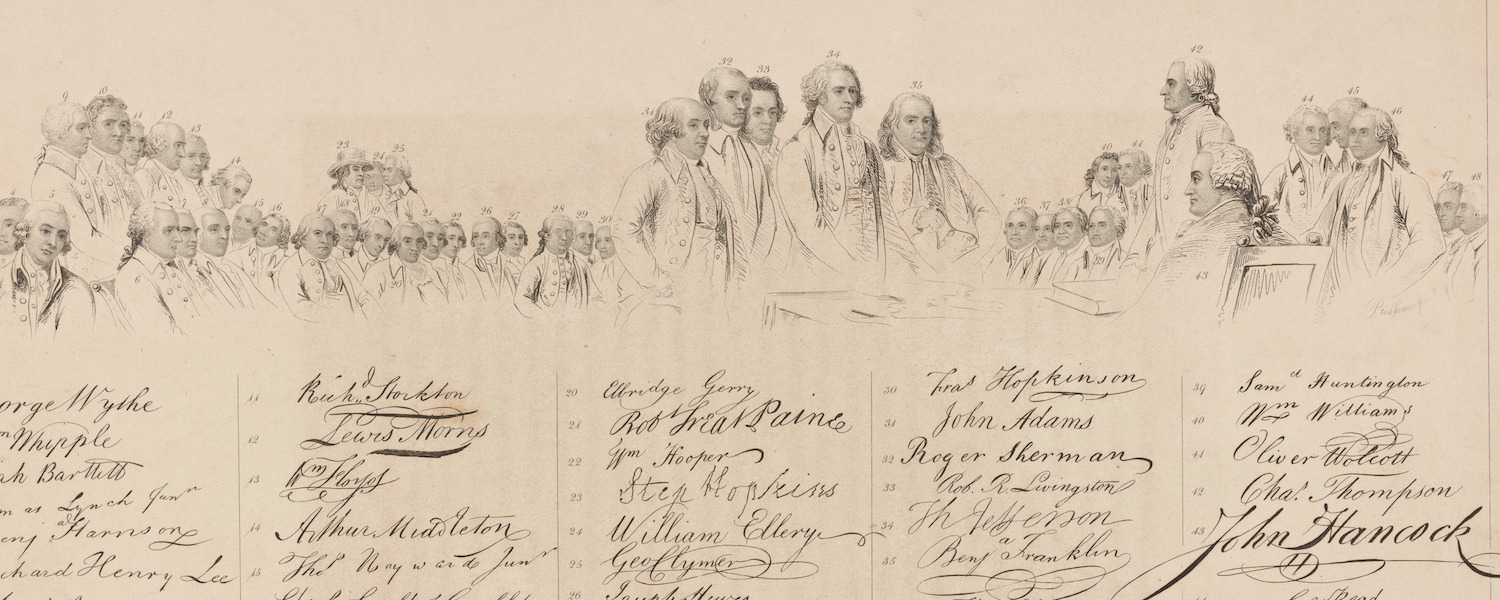 9 10 11 12 13 14 4 5 6 7 15 16
23 24 25 17 18 19 20 21 22 26 27 28 29 30
31 32 33 34 35
36 37 38 39 40 41 42 43
44 45 46 47 48
orge Wythe
m Whipple
ah Bartlett
m as Lynch Junr
enj Harrison
chard Henry Lee
11 Richd. Stockton
12 Lewis Morris
13 Wm Floyd
14 Arthur Middleton
15 Thos Heyward Junr
20 Elbridge Gerry
21 Robt Treat Paine
22 Wm Hooper
23 Step Hopkins
24 William Ellery
25 Geo Clymer
26 Joseph Hewes
30 Fras Hopkinson
31 John Adams
32 Roger Sherman
33 Rob. R. Livingston
34 Th Jefferson
35 Benja Franklin
39 Samd Huntington
40 Wm Williams
41 Oliver Wolcott
42 Chas. Thompson
43 John Hancock